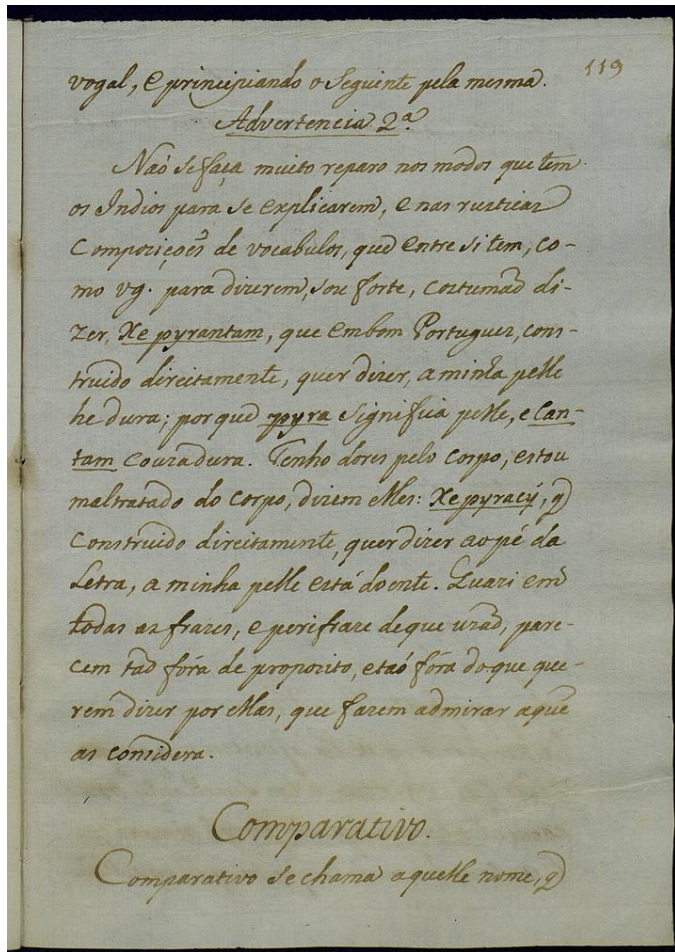 119
vogal, e principiando o seguinte pela mesma.
Advertencia 2ª.
Naó se faça muito reparo nos modos que tem
os Indios para se explicarem, e nas rusticas
Compozições de vocabulos, que entre si tem, co-
mo vg. para dizerem, sou forte, costumaõ di-
zer, Xe pyrantam, que em bom Portuguez, cons-
truido direitamente, quer dizer, a minha pelle
he dura; por que pyra significa pelle, e Can-
tam couza dura. Tenho dores pelo corpo, estou
maltratado do corpo, dizem elles: Xe pyracÿ, q̃
Construido direitamente, quer dizer ao pé da
Letra, a minha pelle está doente. Quazi em
todas as frazes, e perifraze de que uzaõ, pare-
cem taõ fóra de propozito, e taó fóra do que que-
rem dizer por ellas, que fazem admirar a quẽ
as considera.
Comparativo.
Comparativo se chama aquelle nome, q̃